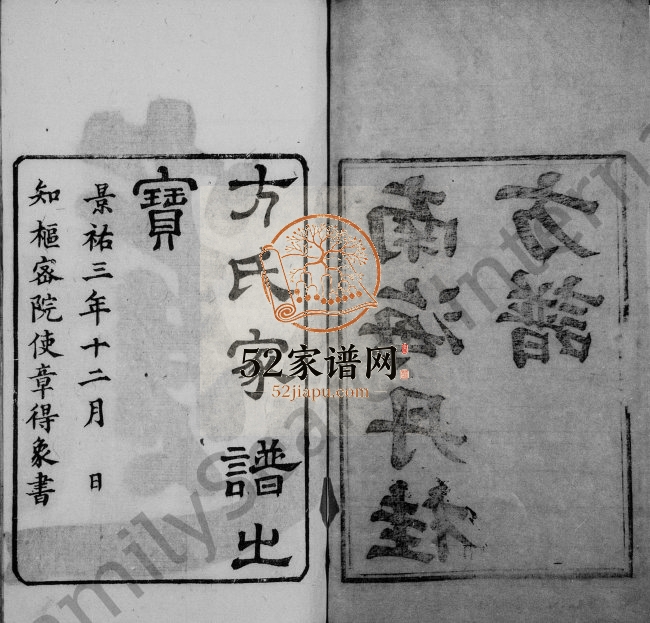 南海丹桂
方譜
方氏家譜之
寶
景祐三年十二月 日
知樞密院使章得象書
52家谱网
52jiapu.com
amilySear
Intern